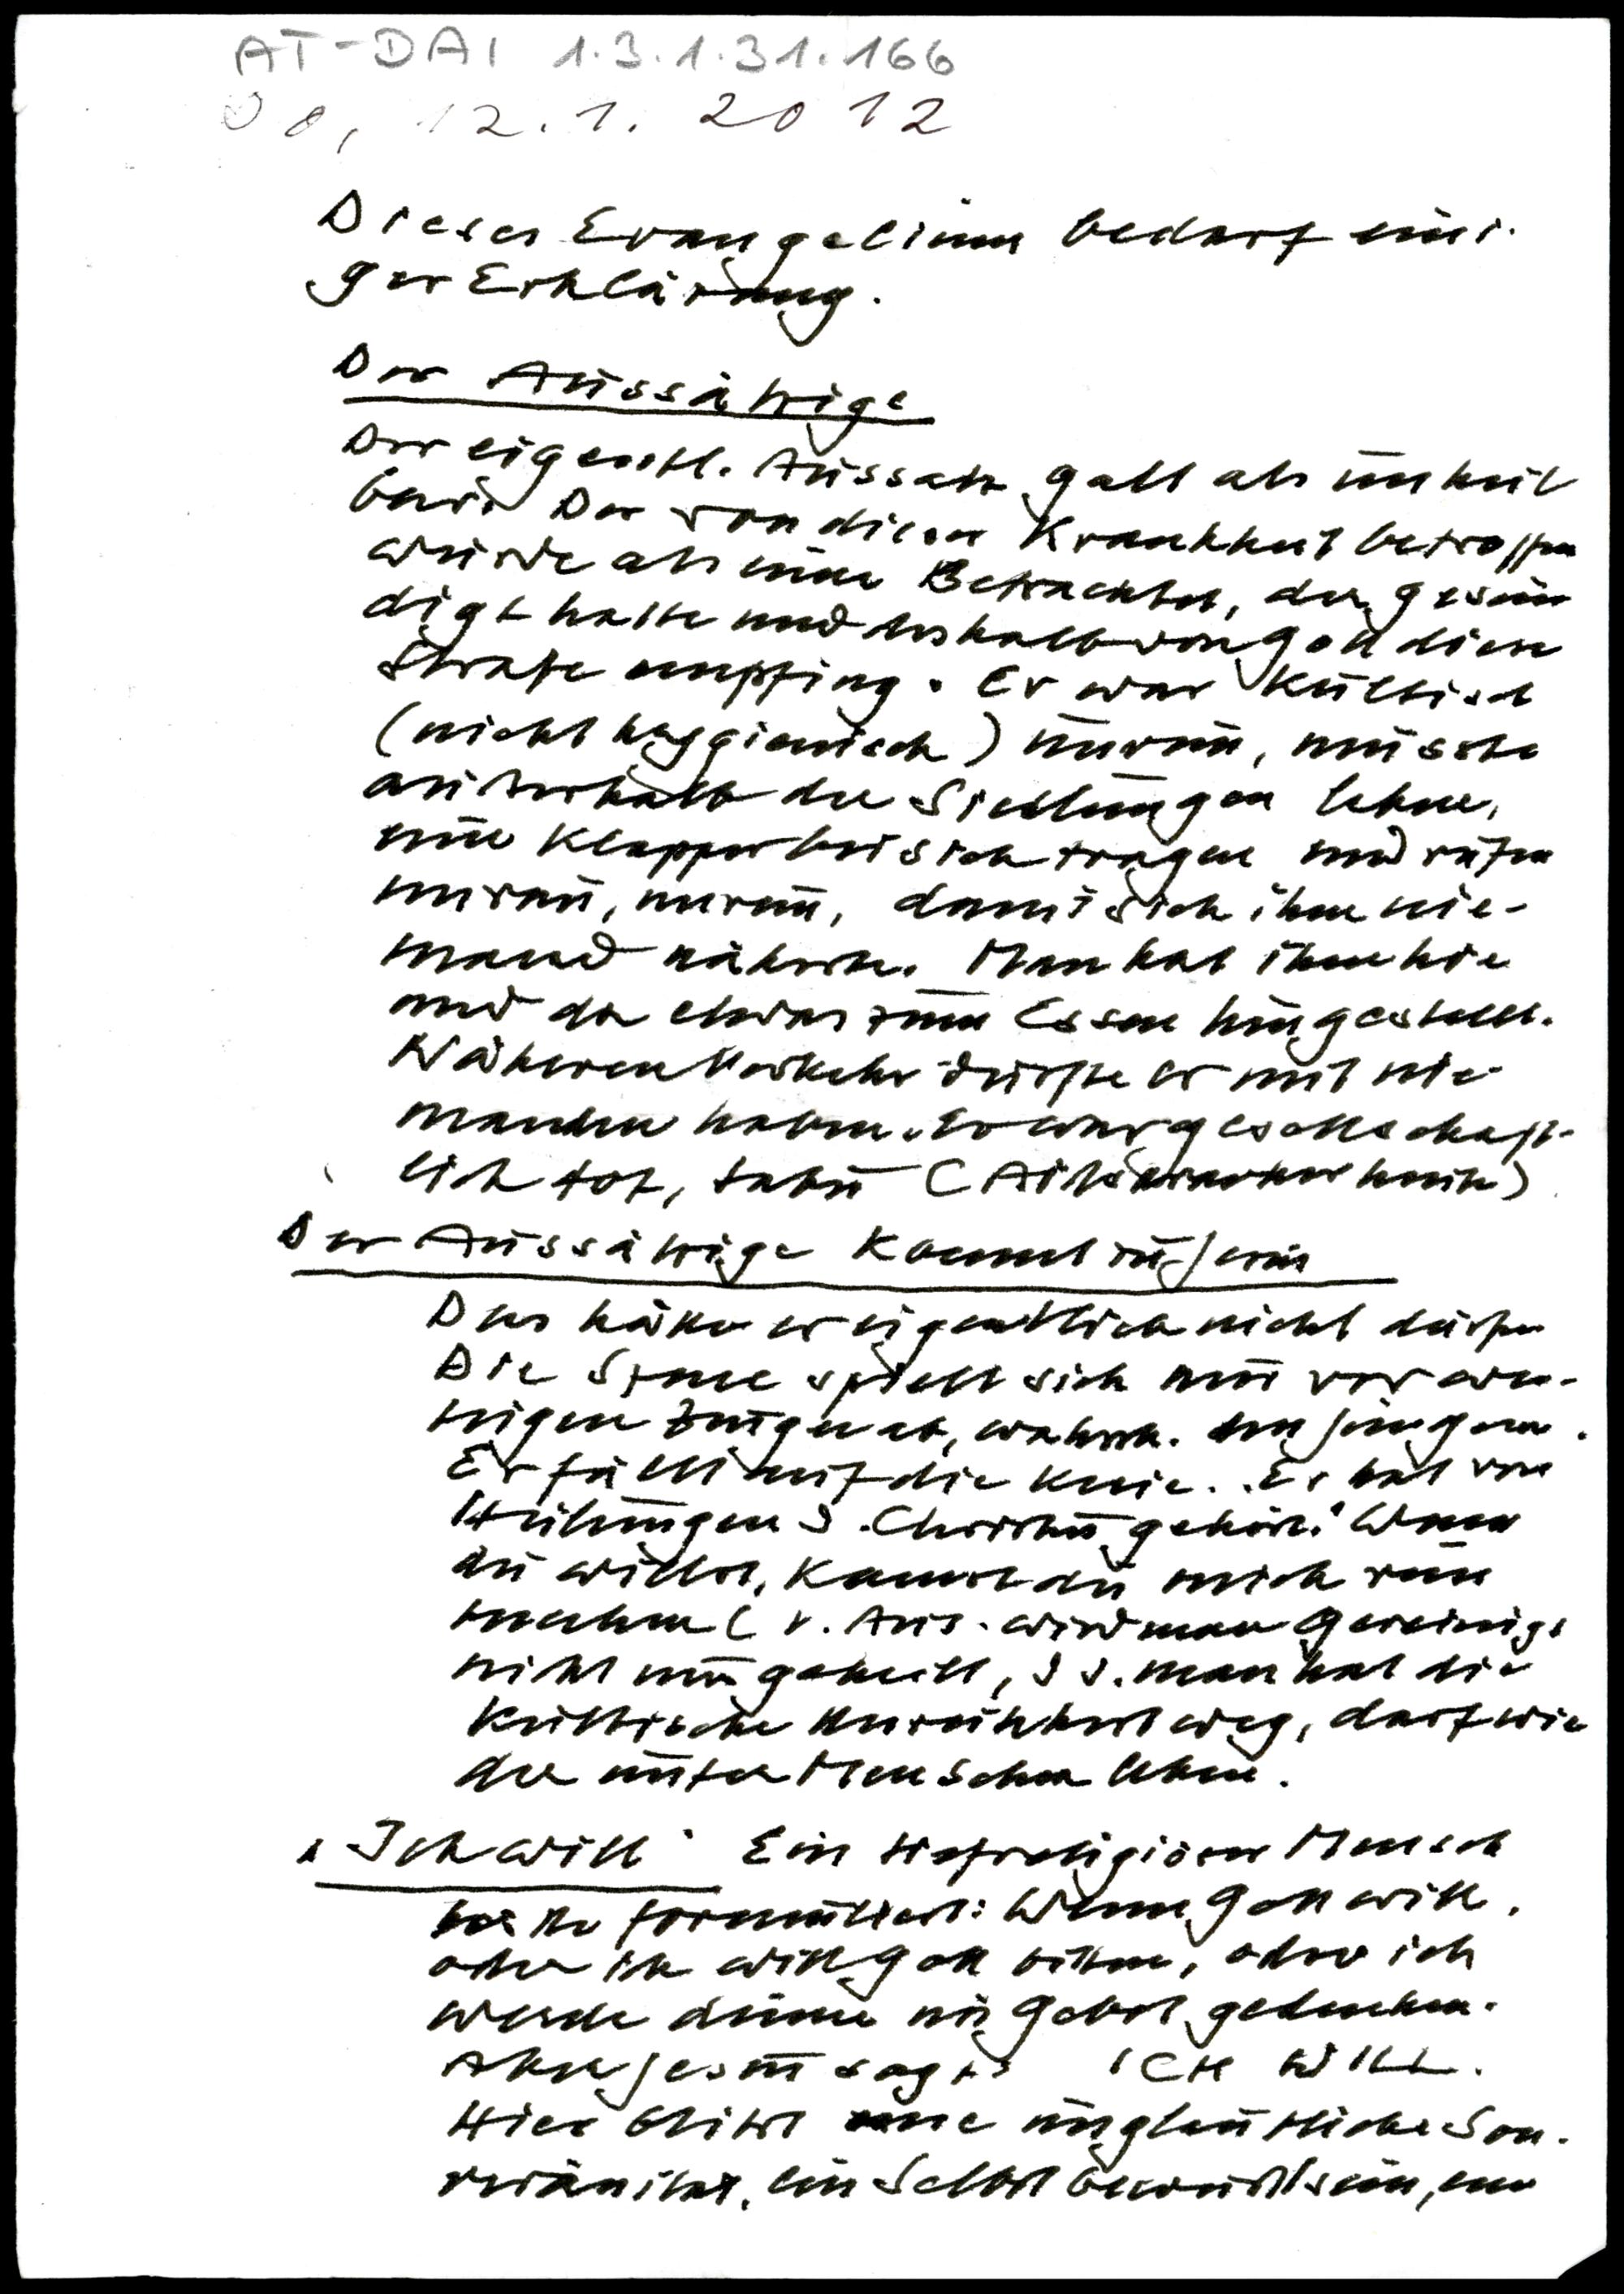 AT-DAI 1.3.1.31.166
Do, 12.1.2012
Dieses Evangelium bedarf eini-
ger Erklärung.
Der Aussätzige
Der eigentl. Aussatz galt als unheil
bar. Der von dieser Krankheit betroffen
wurde als einer Betrachtet, der gesün
digt hatte und deshalb von Gott diese
Strafe empfing. Er war kultisch
(nicht hyggienisch) unrein, musste
außerhalb der Siedlungen leben,
eine Klapper bei sich tragen und rufen
unrein, unrein, damit sich ihm nie-
mand näherte. Man hat ihm hie
und da etwas zum Essen hingestellt.
Näheren Verkehr durfte er mit nie-
manden haben. Er war gesellschaft-
lich tot, tabu (Aidskranker heute)
Der Aussätzige kommt zu Jesus
Das hätte er eigentlich nicht dürfen
Die Szene spielt sich nur vor we-
nigen Zeugen ab, wahrsch. den Jüngern.
Er fällt auf die Knie. Er hat von
Heilungen d. Christus gehört. "Wenn
du willst, kannst du mich rein
machen (v. Aus. wird man gereinigt
nicht nur geheilt, d. d. man hat die
kultische Unreinheit weg, darf wie
der unter Menschen leben.
"Ich will" Ein tiefreligiöser Mensch
hätte formuliert: Wenn Gott will,
oder ich will Gott bitten, oder ich
werde deiner im Gebet gedenken.
Aber Jesus sagt: ICH WILL.
Hier blitzt eine unglaubliche Sou-
veränität, ein Selbstbewußtsein, ein